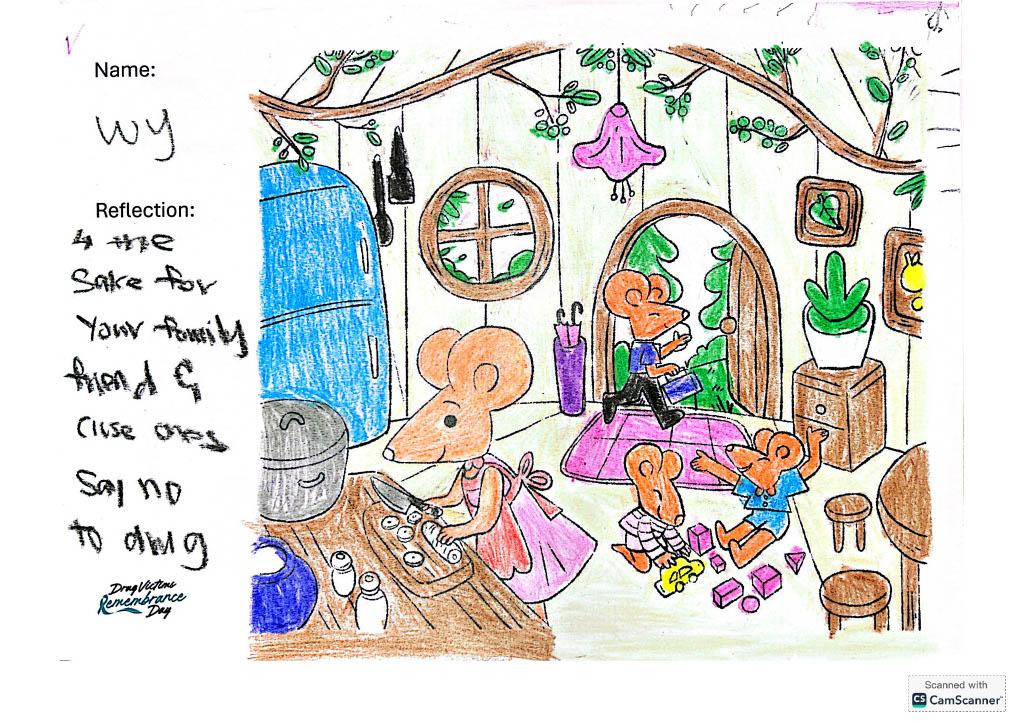 Name:
WY
Reflection:
4 the
Sake for
Your family
friend &
Close ones
Say no
to drug
Drug Victims
Remembrance
Day
Scanned with
CS CamScanner